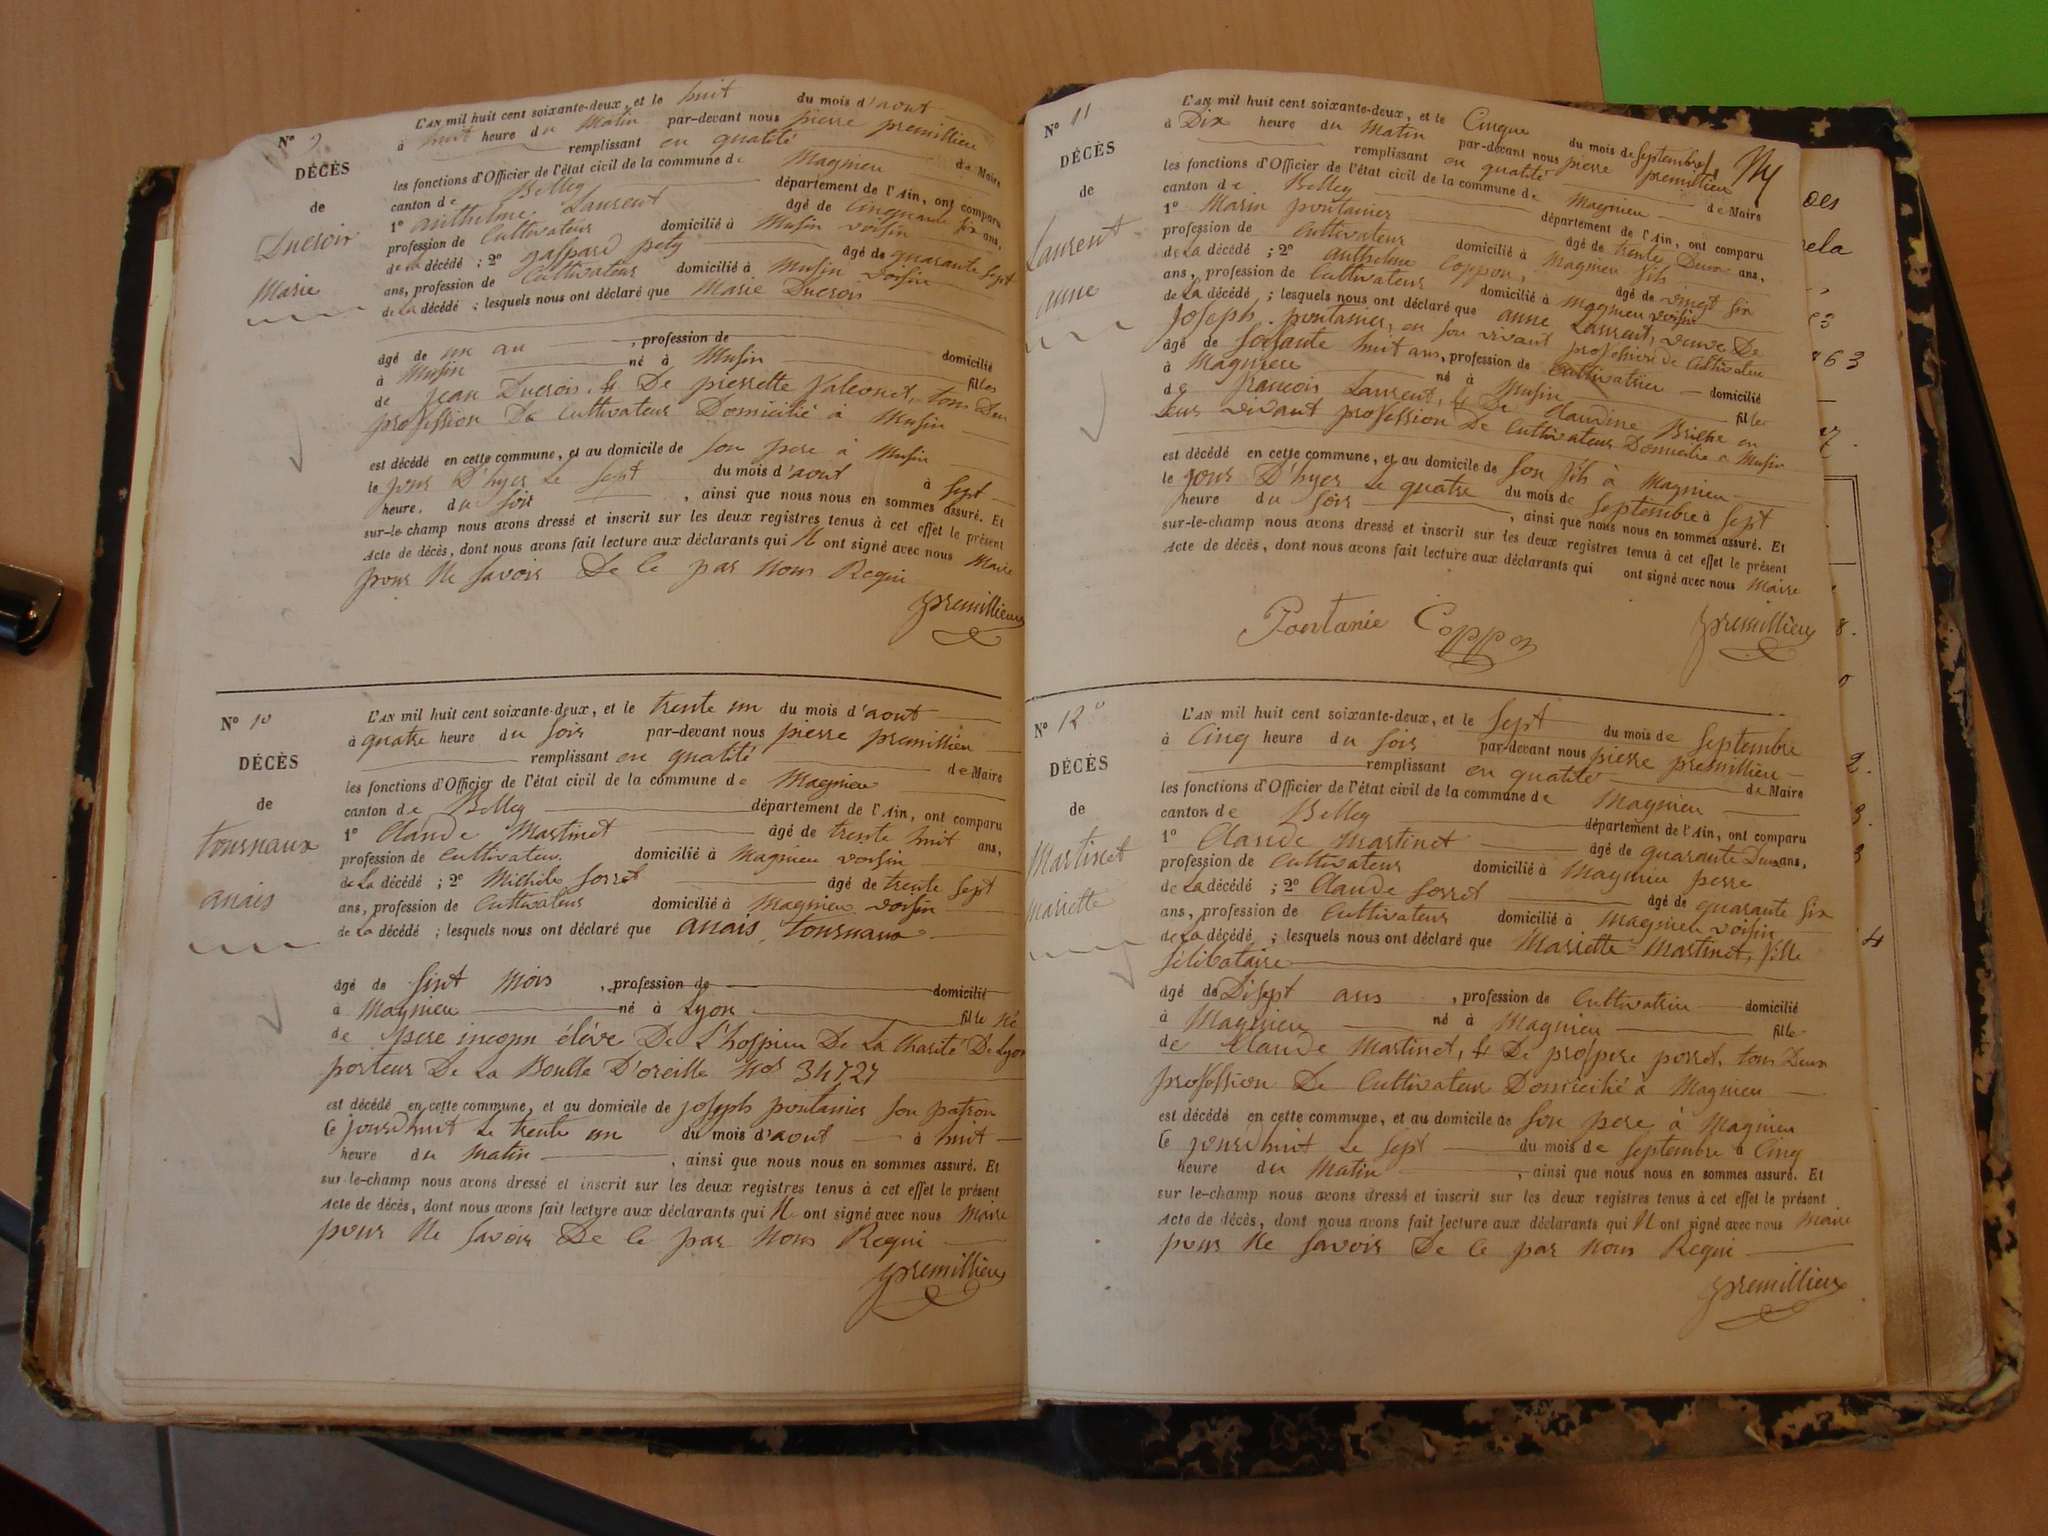 N° 9
DÉCÈS
de
Ducroir
Marie
L'AN mil huit cent soixante-deux, et le huit du mois d'aout
à huit heure du Matin par-devant nous pierre premillieu
remplissant en qualité de Maire
les fonctions d'Officier de l'état civil de la commune de Magnieu
canton de Belley département de l'Ain, ont comparu
1° anthelme Laurent agé de Cinquante six ans,
profession de Cultivateur domicilié à Musin voisin
de la décédé ; 2° gaspard pety agé de quarante sept
ans, profession de Cultivateur domicilié à Musin voisin
de la décédé ; lesquels nous ont déclaré que Marie Ducrois
âgé de un an , profession de domicilié
à Musin né à Musin filles
de jean Ducrois, & De pierrette Valconet, tous Deu
profession De Cultivateur Domicilié à Musin
est décédé en cette commune, et au domicile de son pere à Musin
le jour D'hyer Le sept du mois d'aout à sept
heure du soir , ainsi que nous nous en sommes assuré. Et
sur-le-champ nous avons dressé et inscrit sur les deux registres tenus à cet effet le présent
Acte de décès, dont nous avons fait lecture aux déclarants qui N ont signé avec nous Maire
pour Ne savoir De Ce par Nous Requi
premillieu
N° 10
DÉCÈS
de
tournaux
anais
L'AN mil huit cent soixante-deux, et le trente un du mois d'aout
à quatre heure du soir par-devant nous pierre premillieu
remplissant en qualité de Maire
les fonctions d'Officier de l'état civil de la commune de Magnieu
canton de Belley département de l'Ain, ont comparu
1° Claude Martinet âgé de trente huit ans,
profession de Cultivateur domicilié à Magnieu voisin
de La décédé ; 2° Michile Sorret âgé de trente sept
ans, profession de Cultivateur domicilié à Magnieu voisin
de La décédé ; lesquels nous ont déclaré que anais tournaux
âgé de sint Mois , profession de domicilié
à Magnieu né à Lyon fille né
de pere inconu élève De L'hospice De La Charité De Lyon
porteur De La Boulle D'oreille 34727
est décédé en cette commune, et au domicile de joseph pontanier son patron
Ce jourdhuit Le trente un du mois d'aout à huit
heure du Matin , ainsi que nous nous en sommes assuré. Et
sur-le-champ nous avons dressé et inscrit sur les deux registres tenus à cet effet le présent
Acte de décès, dont nous avons fait lecture aux déclarants qui N ont signé avec nous Maire
pour Ne savoir De Ce par Nous Requi
premillieu
N° 11
DÉCÈS
de
Laurent
anne
L'AN mil huit cent soixante-deux, et le Cinque du mois de septembre
à Dix heure du Matin par-devant nous pierre premillieu
remplissant en qualité de Maire
les fonctions d'Officier de l'état civil de la commune de Magnieu
canton de Belley département de l'Ain, ont comparu
1° Marin pontanier âgé de trente Deux ans,
profession de Cultivateur domicilié à Magnieu fils
de La décédé ; 2° anthelme Coppon, âgé de vingt six
ans, profession de Cultivateur domicilié à Magnieu voisin
de La décédé ; lesquels nous ont déclaré que anne Laurent, veuve De
joseph pontanier, en son vivant profession De Cultivateur
âgé de soisante huit ans, profession de Cultivatrice domicilié
à Magnieu né à Musin fille
de francois Laurent, & De Claudine en
Leur vivant profession De Cultivateur Domicilié a Musin
est décédé en cette commune, et au domicile de son fils à Magnieu
le jour D'hyer Le quatre du mois de septembre à sept
heure du soir , ainsi que nous nous en sommes assuré. Et
sur-le-champ nous avons dressé et inscrit sur les deux registres tenus à cet effet le présent
Acte de décès, dont nous avons fait lecture aux déclarants qui ont signé avec nous Maire
Pontanie Coppon premillieu
N° 12
DÉCÈS
de
Martinet
Mariette
L'AN mil huit cent soixante-deux, et le sept du mois de septembre
à Cinq heure du soir par-devant nous pierre premillieu
remplissant en qualité de Maire
les fonctions d'Officier de l'état civil de la commune de Magnieu
canton de Belley département de l'Ain, ont comparu
1° Claude Martinet âgé de quarante Deux ans,
profession de Cultivateur domicilié à Magnieu perre
de La décédé ; 2° Claude Sorret âgé de quarante six
ans, profession de Cultivateur domicilié à Magnieu voisin
de La décédé ; lesquels nous ont déclaré que Mariette Martinet, fille
selibataire
âgé de Disept ans , profession de Cultivatrice domicilié
à Magnieu né à Magnieu fille
de Claude Martinet, & De prospere porret, tous Deux
profession De Cultivateur Domicilié a Magnieu
est décédé en cette commune, et au domicile de son pere à Magnieu
Ce jourdhuit Le sept du mois de septembre à Cinq
heure du Matin , ainsi que nous nous en sommes assuré. Et
sur le-champ nous avons dressé et inscrit sur les deux registres tenus à cet effet le présent
Acte de décès, dont nous avons fait lecture aux déclarants qui N ont signé avec nous Maire
pour Ne savoir De Ce par Nous Requi
premillieu